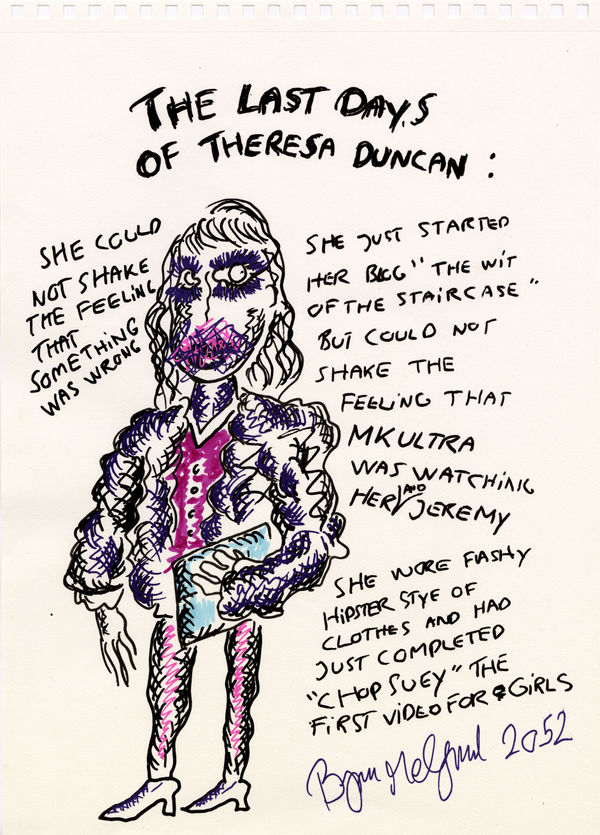 THE LAST DAYS
OF THERESA DUNCAN :
SHE COULD
NOT SHAKE
THE FEELING
THAT
SOMETHING
WAS WRONG
SHE JUST STARTED
HER BLOG "THE WIT
OF THE STAIRCASE"
BUT COULD NOT
SHAKE THE
FEELING THAT
MKULTRA
WAS WATCHING
HER AND JEREMY
SHE WORE FLASHY
HIPSTER STYE OF
CLOTHES AND HAD
JUST COMPLETED
"CHOP SUEY" THE
FIRST VIDEO FOR GIRLS
2052